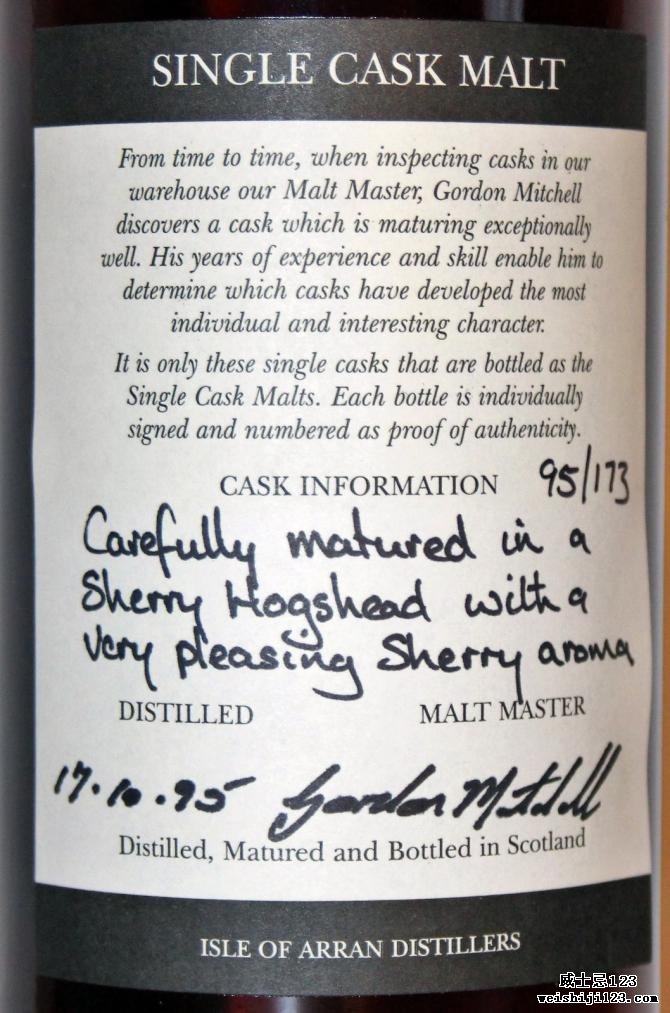 SINGLE CASK MALT
From time to time, when inspecting casks in our
warehouse our Malt Master, Gordon Mitchell
discovers a cask which is maturing exceptionally
well. His years of experience and skill enable him to
determine which casks have developed the most
individual and interesting character.
It is only these single casks that are bottled as the
Single Cask Malts. Each bottle is individually
signed and numbered as proof of authenticity.
CASK INFORMATION 95/173
Carefully matured in a
Sherry Hogshead with a
very pleasing Sherry aroma
DISTILLED MALT MASTER
17.10.95 Gordon Mitchell
Distilled, Matured and Bottled in Scotland
ISLE OF ARRAN DISTILLERS
威士忌123
weishiji123.com